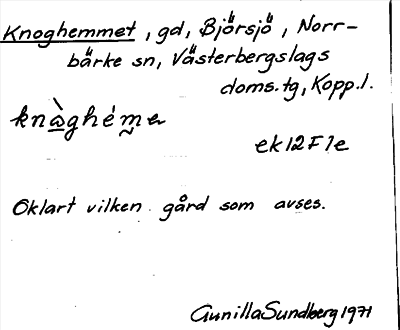 Knoghemmet, gd, Björsjö, Norr-
bärke sn, Västerbergslags
doms.tg, Kopp.l.
knàghém̰a
ek 12 F 1e
Oklart vilken gård som avses.
Gunilla Sundberg 1971